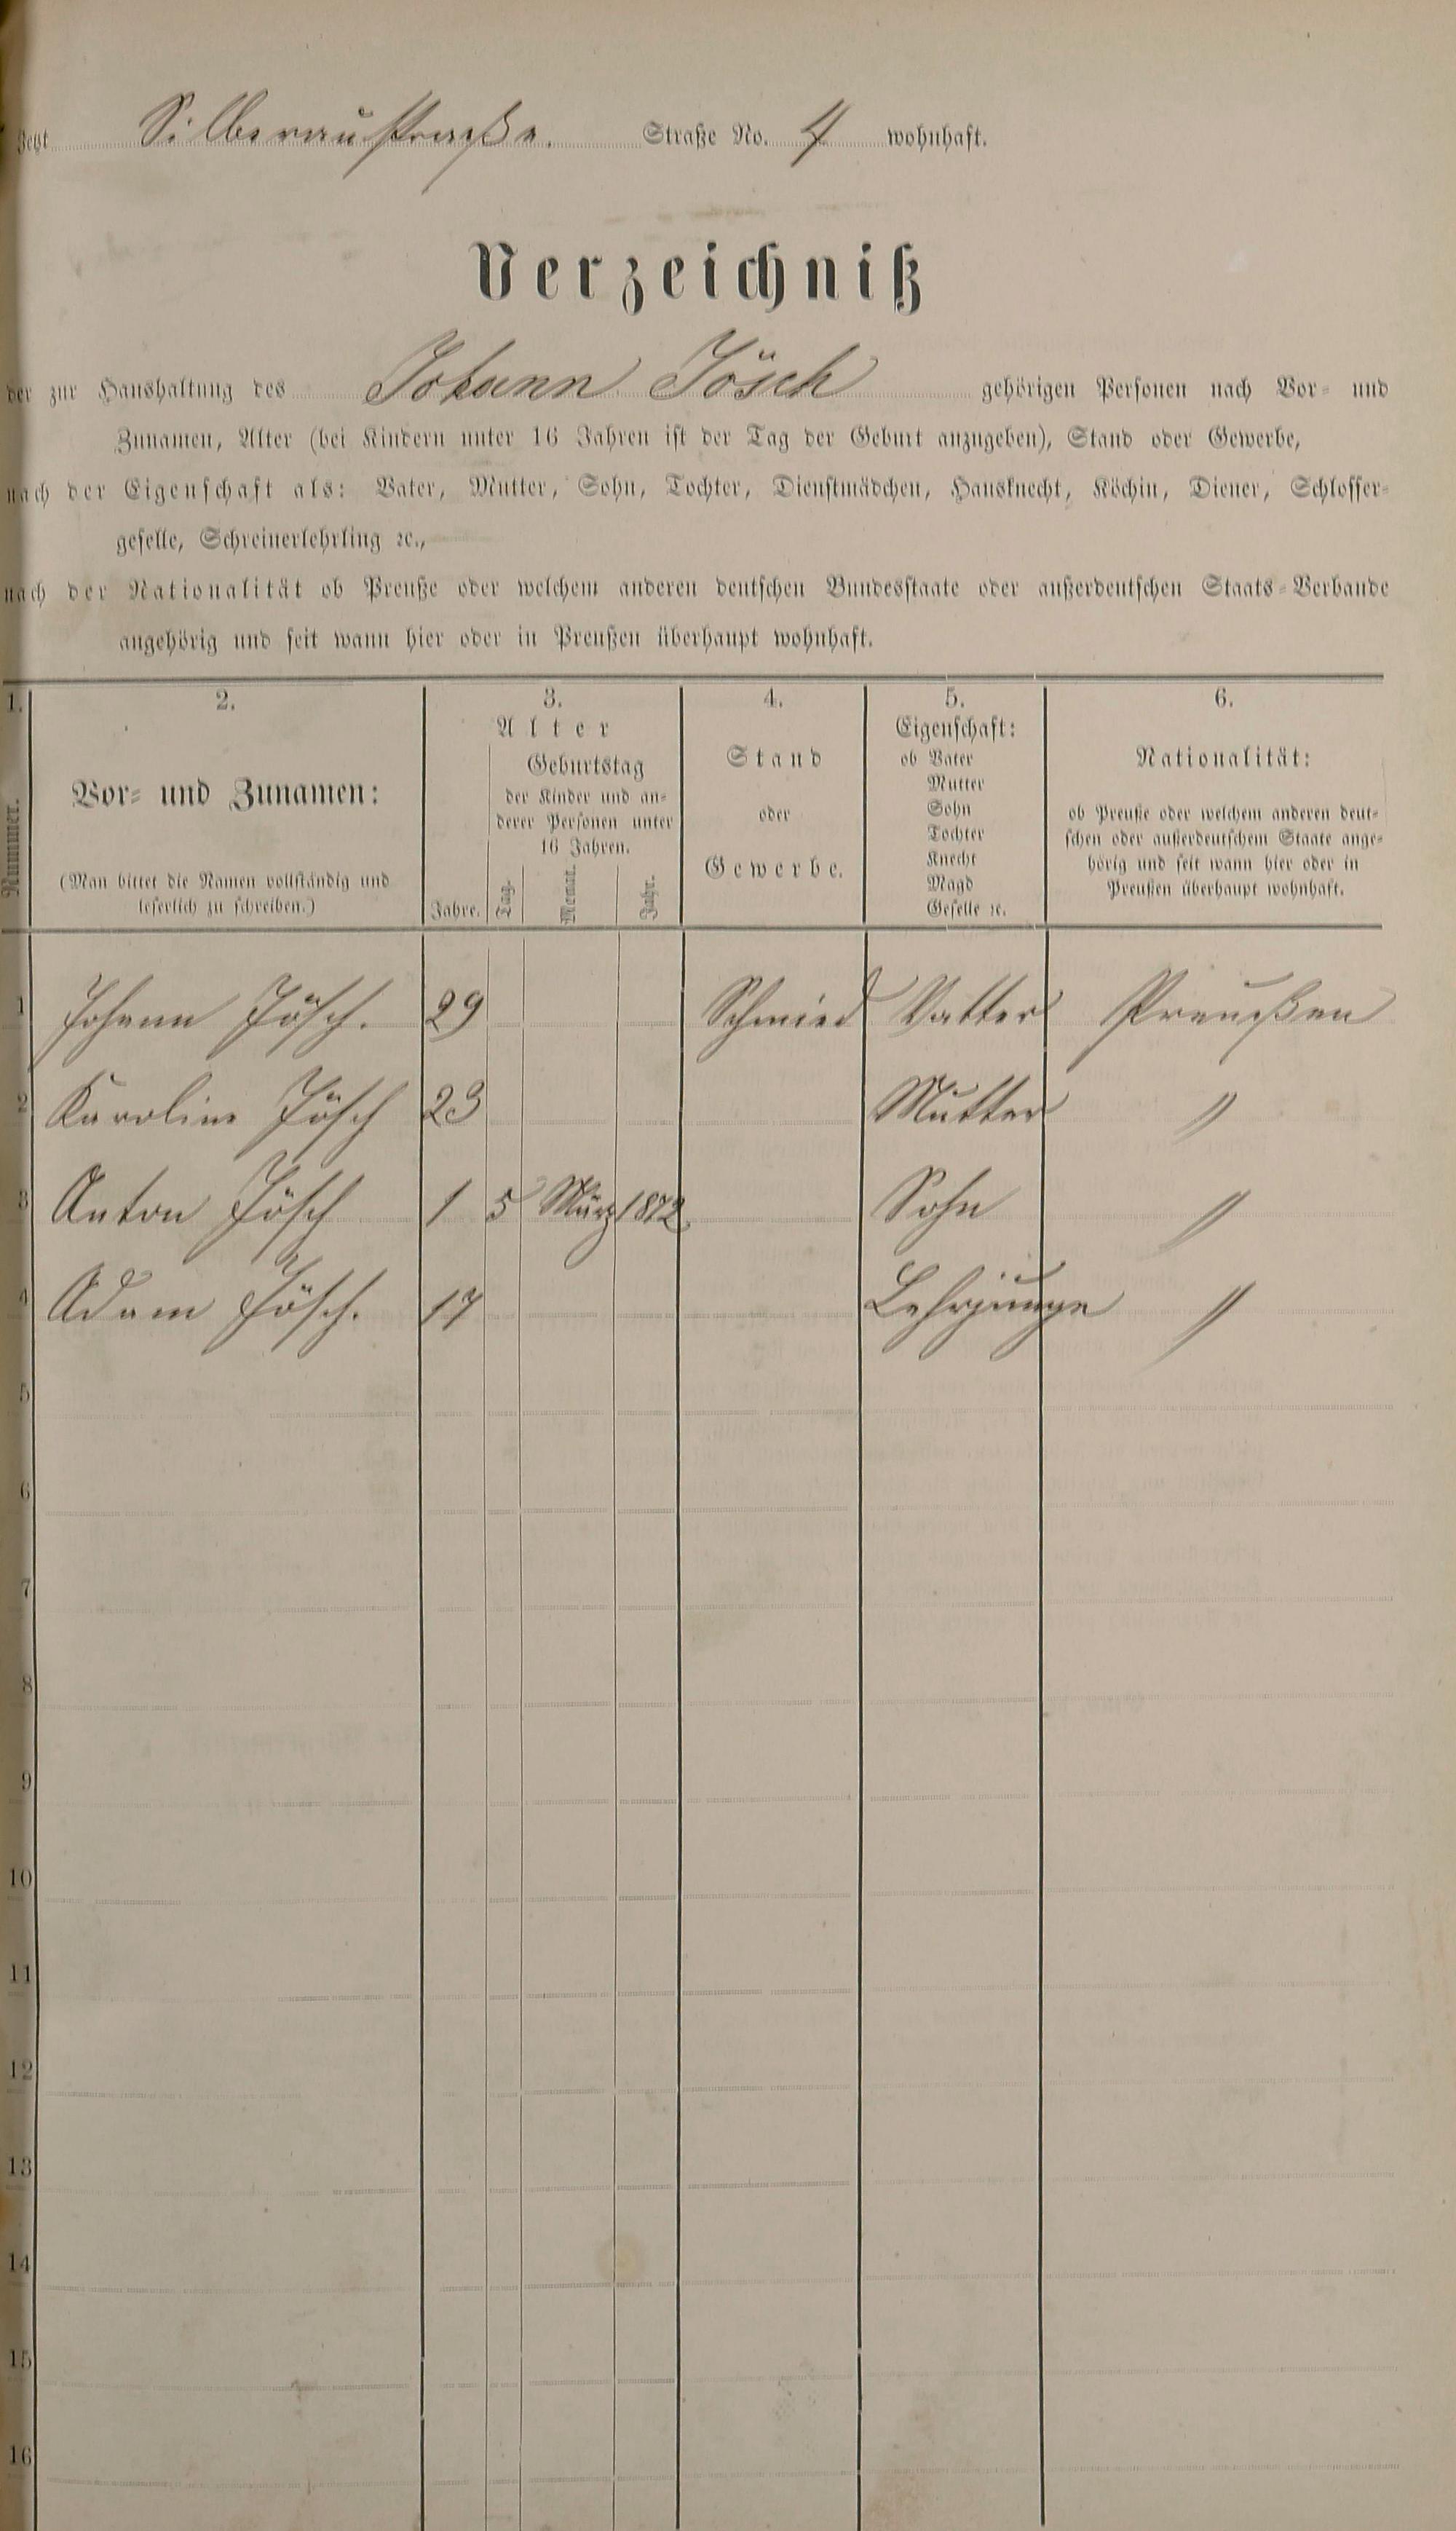 Jetzt Silberaustraße. Straße No. 4 wohnhaft.
Verzeichniß
der zur Haushaltung des Johann Jösch gehörigen Personen nach Vor- und
Zunamen, Alter (bei Kindern unter 16 Jahren ist der Tag der Geburt anzugeben), Stand oder Gewerbe,
nach der Eigenschaft als: Vater, Mutter, Sohn, Tochter, Dienstmädchen, Hausknecht, Köchin, Diener, Schlosser-
geselle, Schreinerlehrling ꝛc.,
nach der Nationalität ob Preuße oder welchem anderen deutschen Bundesstaate oder außerdeutschen Staats-Verbande
angehörig und seit wann hier oder in Preußen überhaupt wohnhaft.
1. 2. 3. 4. 5. 6.
Nummer.
Vor- und Zunamen:
(Man bittet die Namen vollständig und
leserlich zu schreiben.)
Alter
Jahre.
Geburtstag
der Kinder und an-
derer Personen unter
16 Jahren.
Tag. Monat. Jahr.
Stand
oder
Gewerbe.
Eigenschaft:
ob Vater
Mutter
Sohn
Tochter
Knecht
Magd
Geselle ꝛc.
Nationalität:
ob Preuße oder welchem anderen deut-
schen oder außerdeutschem Staate ange-
hörig und seit wann hier oder in
Preußen überhaupt wohnhaft.
1 Johann Jösch. 29 Schmied Vatter Preußen
2 Karoline Jösch 23 Mutter "
3 Anton Jösch 1 5 März 1872 Sohn "
4 Adam Jösch. 17 Lehrjunge "
5
6
7
8
9
10
11
12
13
14
15
16